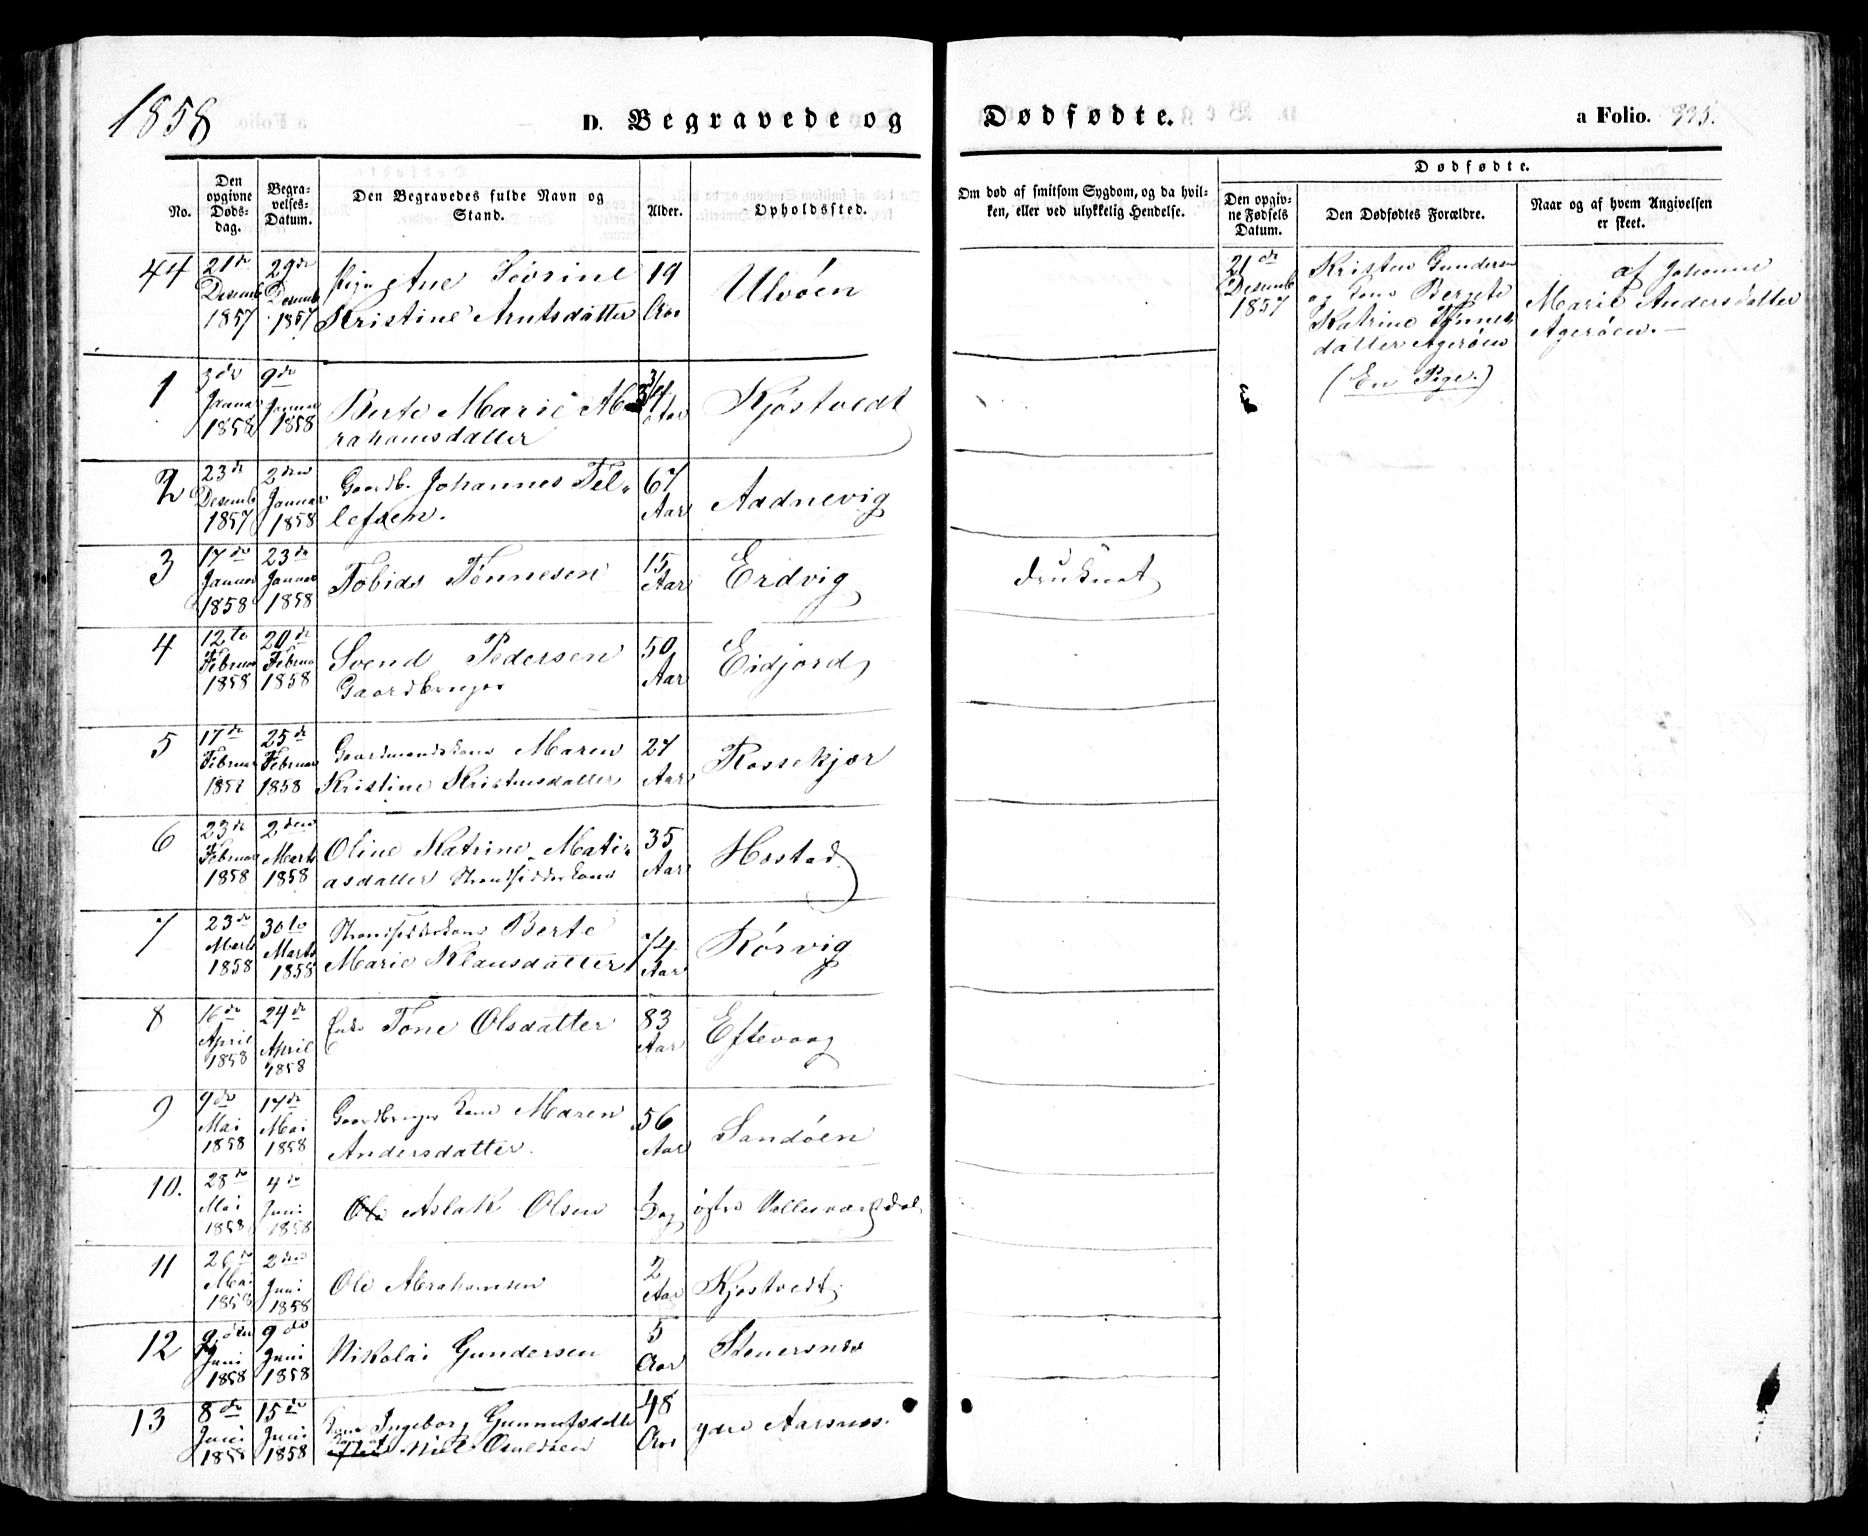 1858
D. Begravede og Dødfødte.
a Folio. 225.
No.
Den opgivne Døds-dag.
Begra-velses-Datum.
Den Begravedes fulde Navn og Stand.
Alder.
Opholdssted.
Om død af smitsom Sygdom, og da hvil-ken, eller ved ulykkelig Hendelse.
Dødfødte.
Den opgiv-ne Fødsels Datum.
Den Dødfødtes Forældre.
Naar og af hvem Angivelsen er skeet.
44 21de Desemb 1857 29de Desemb 1857 Pige Ane Severine
Kristine Arntsdatter 19 Aar Ulvøen
21de Desemb 1857
Kristen Gundersen
og Kone Bergete
Katrine Tønnes
datter Agerøen
(En Pige.)
af Johanne
Marie Andersdatter
Agerøen.
1 3de Januar 1858 9de Januar 1858 Berte Marie Ab
rahamsdatter 3/4 Aar Kjøstvedt
2 23de Desemb 1857 2den Januar 1858 Gaardb. Johannes Tel-
lefsen. 67 Aar Aadnevig
3 17de Januar 1858 23de Januar 1858 Tobias Tønnesen 15 Aar Erdvig druknet
4 12te Februar 1858 20de Februar 1858 Svend Pedersen
Gaardbruger 50 Aar Eidjord
5 17de Februar 1858 25de Februar 1858 Gaardmandskone Maren
Kristine Kristensdatter 27 Aar Rossekjær
6 23de Februar 1858 2den Marts 1858 Oline Katrine Mati-
asdatter Strandsidderkone 35 Aar Høstad
7 23de Marts 1858 30te Marts 1858 Strandsidderkone Berte
Marie Klausdatter 74 Aar Rørvig
8 16de April 1858 24de April 1858 Enke Tone Olsdatter 83 Aar Eftevaag
9 9de Mai 1858 17de Mai 1858 Gaardbruger Kone Maren
Andersdatter. 56 Aar Sandøen
10. 28de Mai 1858 4de Juni 1858 Ole Aslak Olsen 1 Dag østre Vallesværdal
11 26de Mai 1858 2den Juni 1858 Ole Abrahamsen 2 Aar Kjøstvedt
12 Juni 1858 9de Juni 1858 Nikolai Gundersen 5 Aar
13 8de Juni 1858 15de Juni 1858 Kone Ingeborg Gunnufsdatter
Niels Osuldsen 48 Aar ydre Aarsnes.